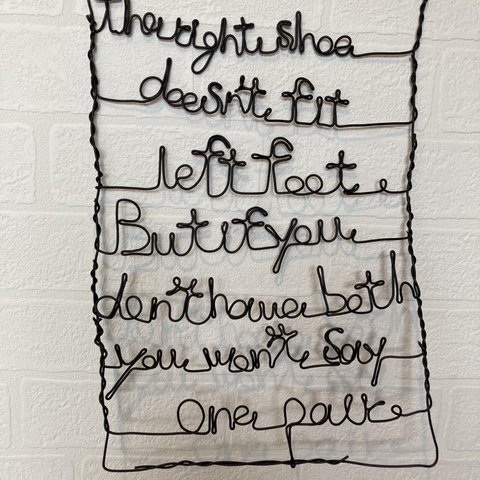 the right shoe
doesn't fit
left feet
But if you
don't have both
you won't say
one pair